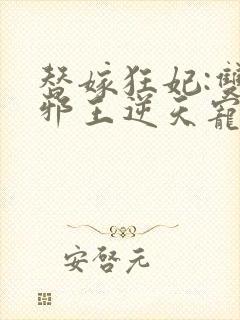 替嫁狂妃:雙
邪王逆天寵
安啓元